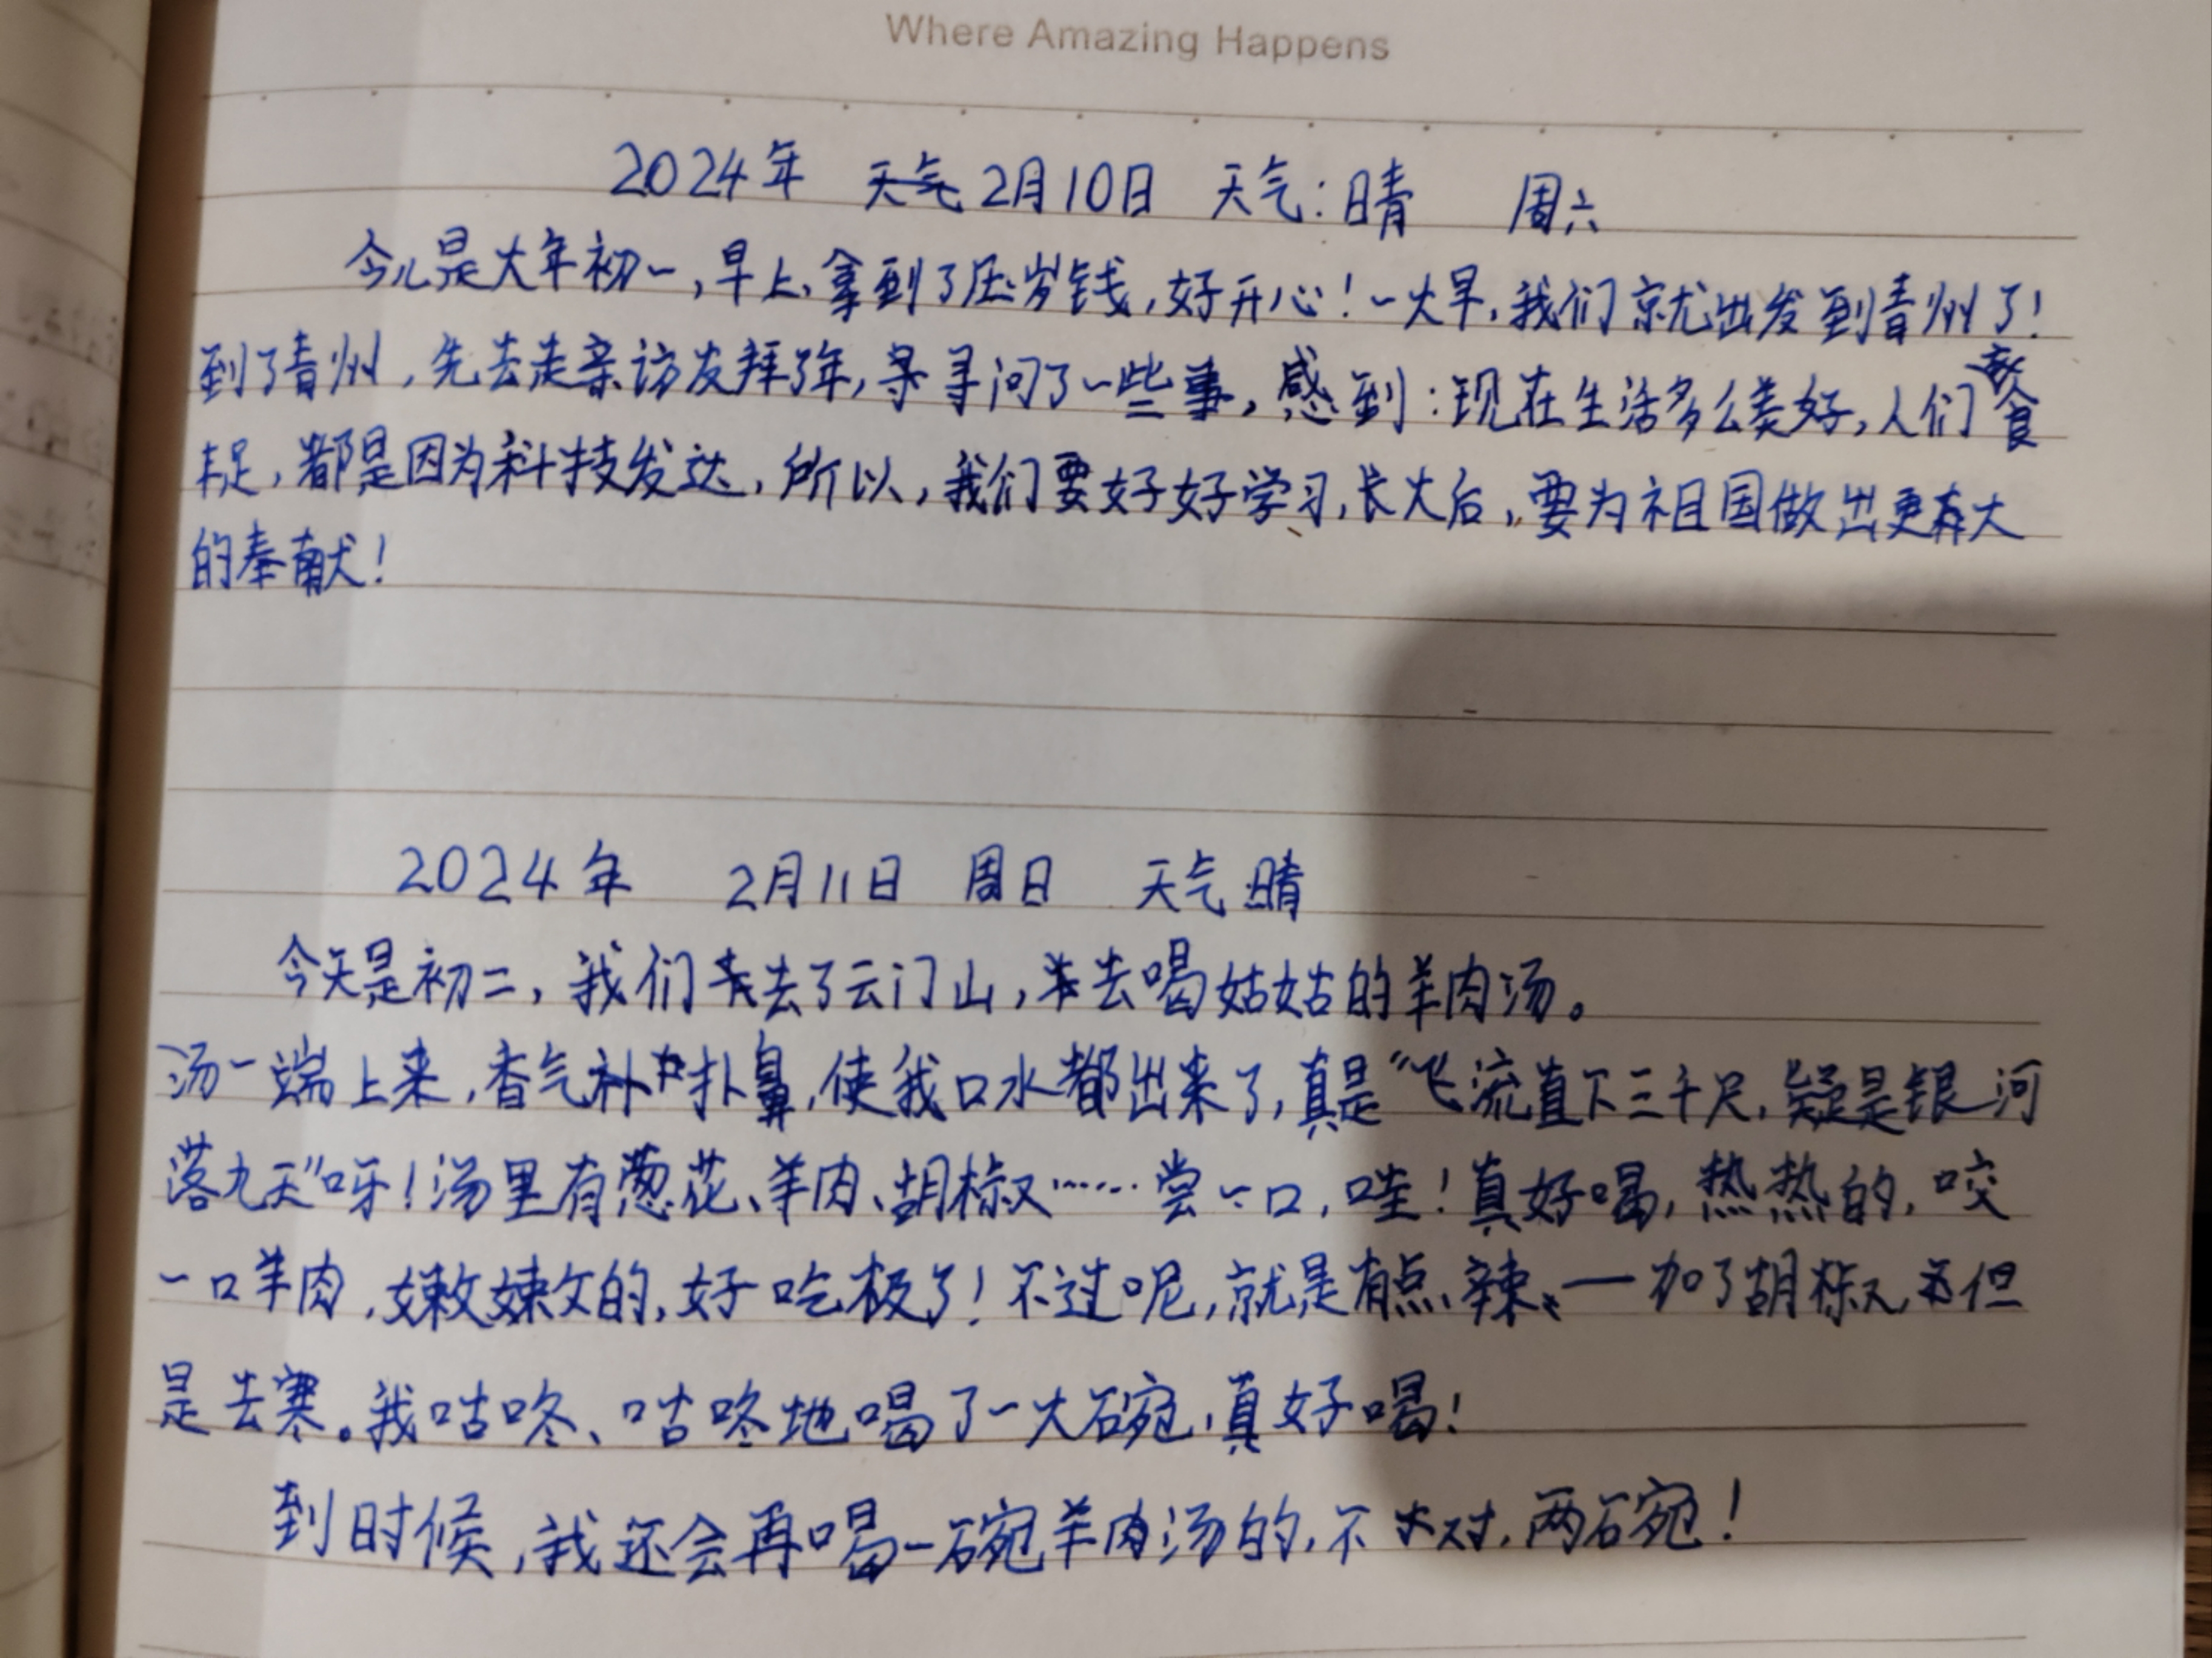 Where Amazing Happens
2024年 2月10日 天气：晴 周六
今儿是大年初一，早上，拿到了压岁钱，好开心！一大早，我们就出发到青州了！
到了青州，先去走亲访友拜了年，寻问了一些事，感到：现在生活多么美好，人们食
丰足，都是因为科技发达，所以，我们要好好学习，长大后，要为祖国做出更大
的奉献！
2024年 2月11日 周日 天气 晴
今天是初二，我们去了云门山，去喝姑姑的羊肉汤。
汤一端上来，香气扑鼻，使我口水都出来了，真是“飞流直下三千尺，疑是银河
落九天”呀！汤里有葱花、羊肉、胡椒……尝一口，哇！真好喝，热热的，咬
一口羊肉，嫩嫩的，好吃极了！不过呢，就是有点辣、一加了胡椒，但
是去寒。我咕咚、咕咚地喝了一大碗，真好喝！
到时候，我还会再喝一碗羊肉汤的，不对，两碗！